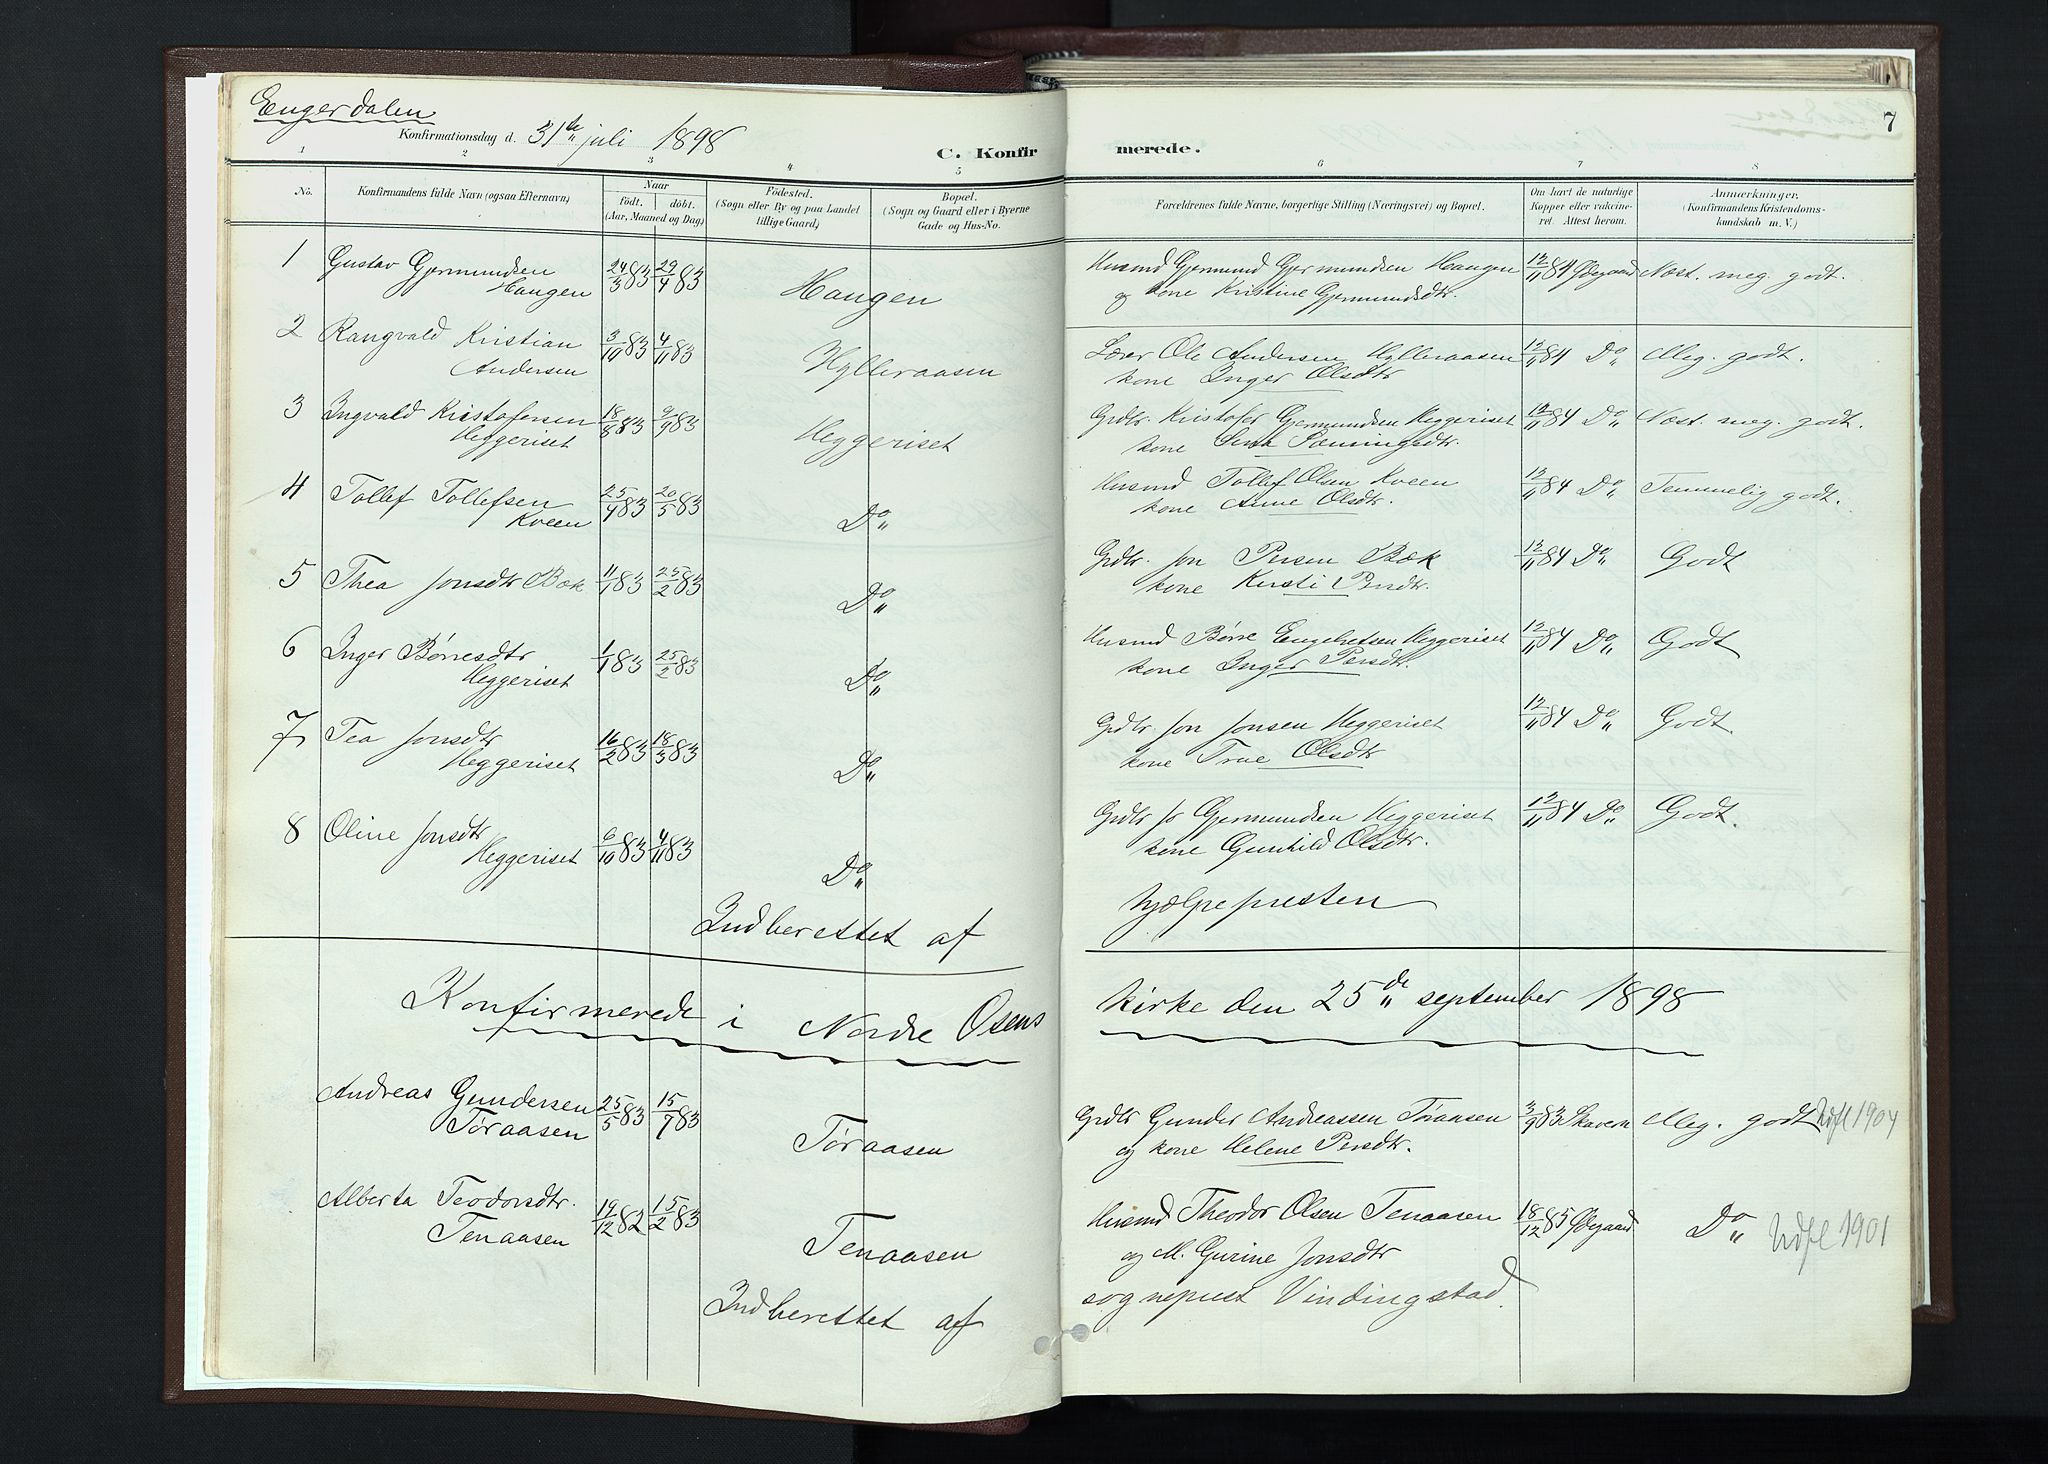 Engerdalen
7
Konfirmationsdag d. 31te juli 1898
C. Konfirmerede.
1 2 3 4 5 6 7 8
No.
Konfirmandens fulde Navn (ogsaa Efternavn)
Naar
födt. döbt.
(Aar, Maaned og Dag)
Födested.
(Sogn eller By og paa Landet
tillige Gaard)
Bopæl.
(Sogn og Gaard eller i Byerne
Gade og Hus-No.
Forældrenes fulde Navne, borgerlige Stilling (Næringsvei) og Bopæl.
Om havt de naturlige
Kopper eller vakcine-
ret. Attest herom.
Anmærkninger.
(Konfirmandens Kristendoms-
kundskab m. V.)
1 Gustav Gjermundsen 24/3 83 29/4 83 Haugen Husmd Gjermund Gjermundsen Haugen 12/11 84 Ødegaard Næst. meg. godt.
Haugen og kone Kristine Gjermundsdtr.
2 Rangvald Kristian 3/10 83 4/11 83 Hylleraasen Lærer Ole Andersen Hylleraasen 12/11 84 Do Meg. godt.
Andersen kone Inger Olsdtr
3 Ingvald Kristofersen 18/8 83 9/9 83 Heggeriset Grdbr. Kristofer Gjermundsen Heggeriset 12/11 84 Do Næst. meg. godt.
Heggeriset kone
4 Tollef Tollefsen 25/4 83 20/5 83 Do Husmd Tollef Olsen Kveen 12/11 84 Do Temmelig godt.
Kveen kone Anne Olsdtr.
5 Thea Jonsdtr Bæk 11/1 83 25/2 83 Do Grdbr. Jon Persen Bæk 12/11 84 Do Godt
kone Kersti Persdtr.
6 Inger Børresdtr 1/1 83 25/2 83 Do Husmd Børre Engebretsen Heggeriset 12/11 84 Do Godt
Heggeriset kone Inger Persdtr.
7 Tea Jonsdtr 16/2 83 18/3 83 Do Grdbr Jon Jonsen Heggeriset 12/11 84 Do Godt.
Heggeriset kone Olsdtr
8 Oline Jonsdtr 6/10 83 4/11 83 Do Grdbr Jo Gjermundsen Heggeriset 12/11 84 Do Godt.
Heggeriset kone Gunhild Olsdtr.
Indberettet af hjælpepresten
Konfirmerede i Nordre Osens kirke den 25de september 1898
Andreas Gundersen 25/5 83 15/7 83 Tøraasen Grdbr Gunder Andreassen Tøraasen 3/9 83 Skavern Meg. godt Udfl 1904
Tøraasen og kone Helene Persdtr.
Alberta Teodorsdtr. 19/12 82 15/2 83 Tenaasen Husmd Theodor Olsen Tenaasen 18/12 85 Ødegaard Do Udfl 1901
Tenaasen og M. Gurine Jonsdtr
Indberettet af sognepræst Vindingstad.